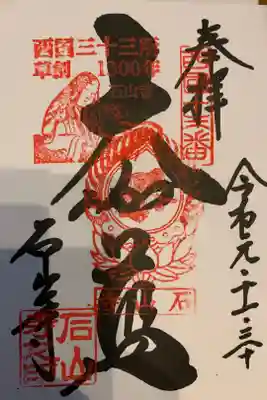 奉拝
西国十三番
令和元・十一・三十
西国三十三所
草創1300年
石山寺
大伽藍
石山寺
石山